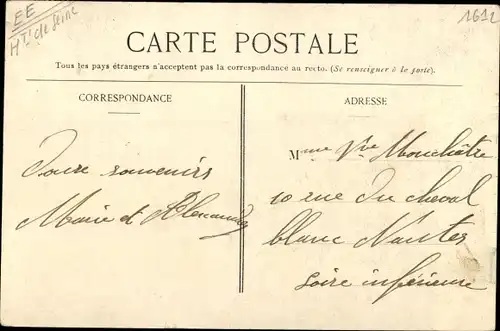 EE
Ht de Seine
1612
CARTE POSTALE
Tous les pays étrangers n'acceptent pas la correspondance au recto. (Se renseigner à la poste).
CORRESPONDANCE
Doux souvenirs
Marie et Alexandre
ADRESSE
Mme Vve Mouchâtre
10 rue du cheval
blanc Nantes
Loire inférieure